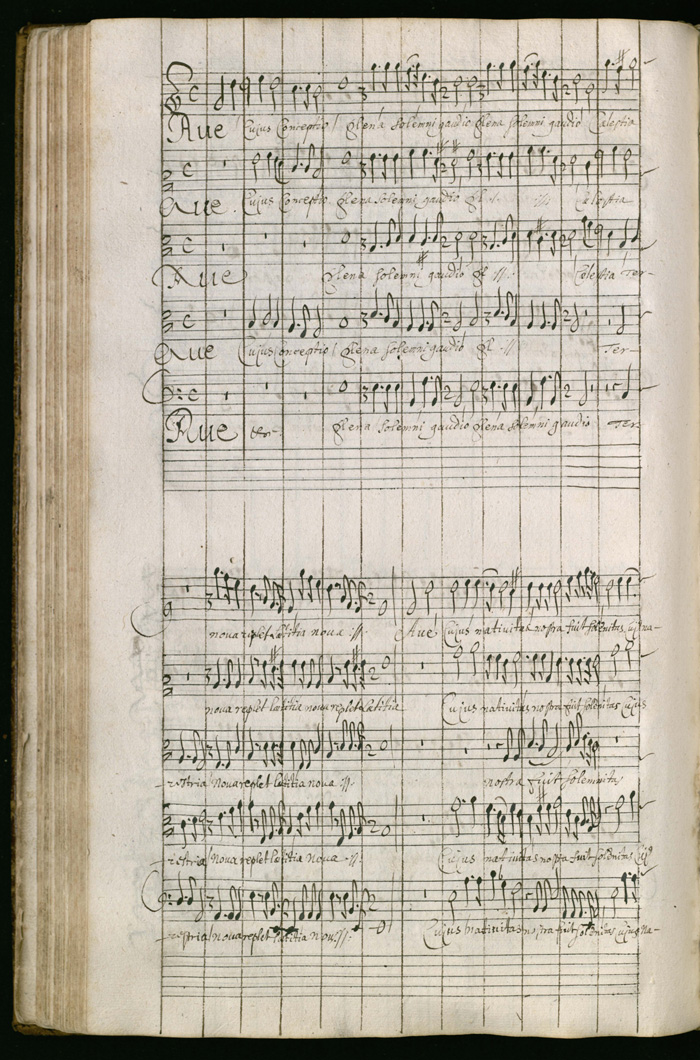 Aue Cujus Conceptio plena solemni gaudio plena solemni gaudio Cælestia
Aue. Cujus Conceptio plena solemni gaudio pl. :// Cælestia
Aue plena solemni gaudio pl :// Cælestia Ter-
Aue Cujus Conceptio plena solemni gaudio pl :// Ter-
Aue plena solemni gaudio plena solemni gaudio Ter-
nova replet lætitia nova :// Aue Cujus nativitas nostra fuit solennitas
nova replet lætitia nova replet lætitia Cujus nativitas nostra fuit solennitas Cujus
-restria nova replet lætitia nova :// nostra fuit solemnitas
-restria nova replet lætitia nova :// Cujus nativitas nostra fuit solennitas
-restria nova replet lætitia nova :// Cujus nativitas nostra fuit solennitas cujus na-